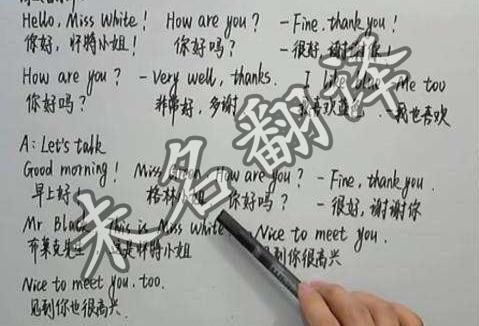 Hello, Miss White! How are you? - Fine, thank you!
你好，怀特小姐！ 你好吗？ - 很好，谢谢你！
How are you? - Very well, thanks. I like blue. - Me too
你好吗？ 非常好，多谢 我喜欢蓝色 - 我也喜欢
A: Let's talk
Good morning! Miss Green, How are you? - Fine, thank you.
早上好！ 格林小姐 你好吗？ - 很好，谢谢你
Mr Black, This is Miss White. Nice to meet you.
布莱克先生 这是怀特小姐 见到你很高兴
Nice to meet you, too.
见到你也很高兴
未名翻译